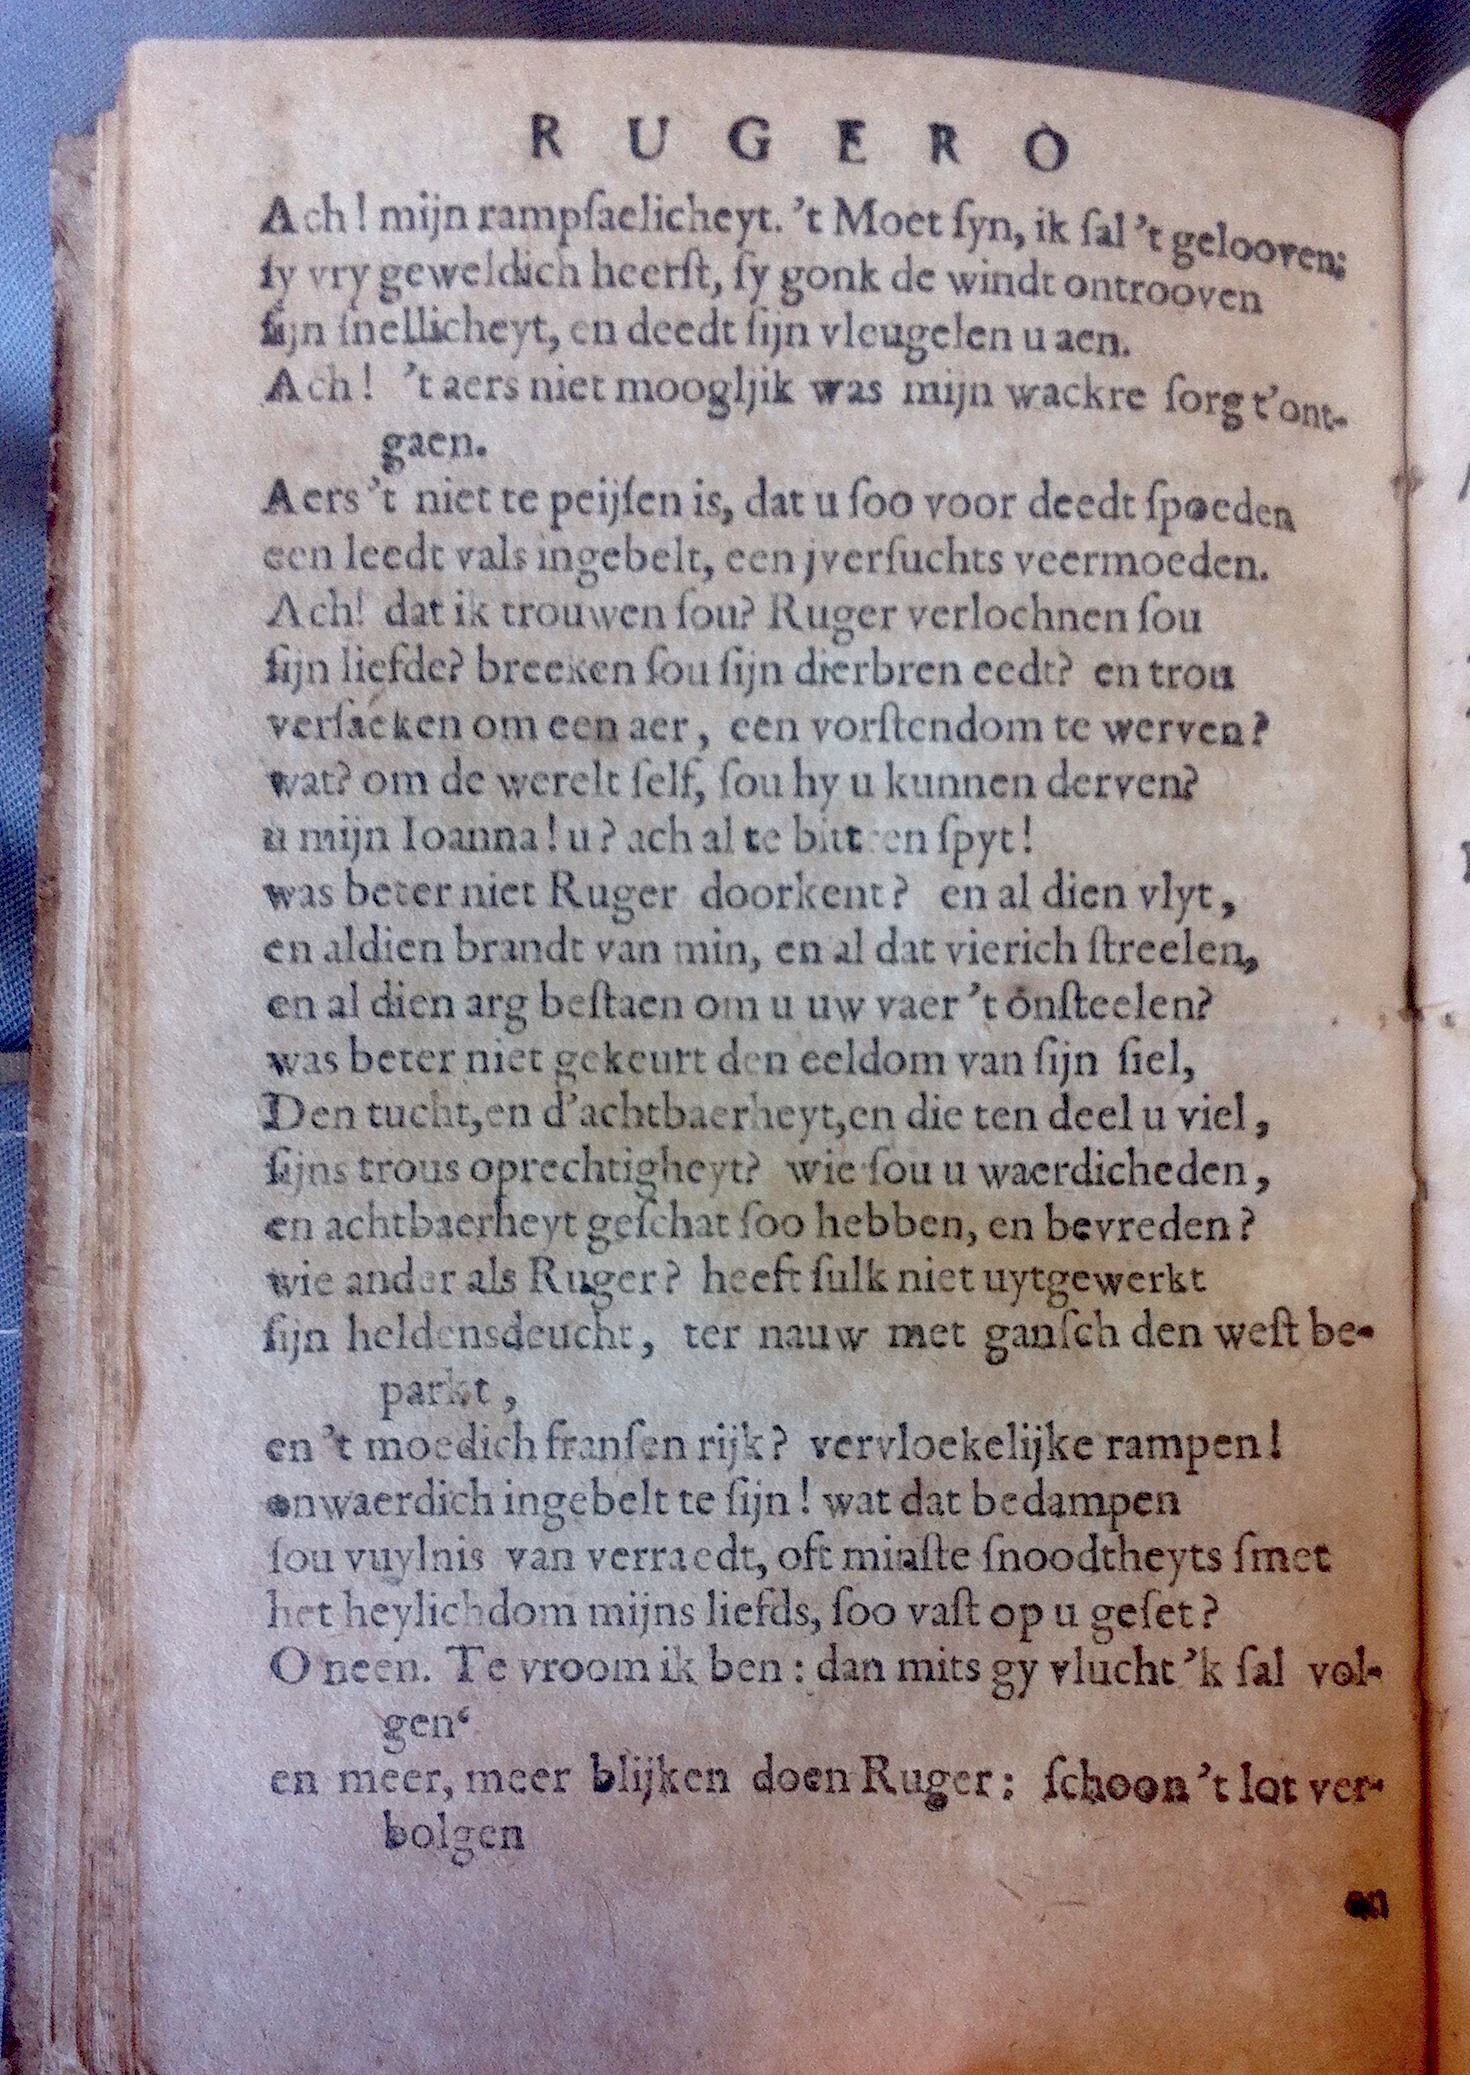 RUGERO
Ach! mijn rampſaelicheyt. 't Moet ſyn, ik ſal 't gelooven;
ſy vry geweldich heerſt, ſy gonk de windt ontrooven
ſijn ſnellicheyt, en deedt ſijn vleugelen u aen.
Ach! 't aers niet moogljik was mijn wackre ſorg t'ont-
gaen.
Aers 't niet te peijſen is, dat u ſoo voor deedt ſpoeden
een leedt vals ingebelt, een jverſuchts veermoeden.
Ach! dat ik trouwen ſou? Ruger verlochnen ſou
ſijn liefde? breeken ſou ſijn dierbren eedt? en trou
verſaeken om een aer, een vorſtendom te werven?
wat? om de werelt ſelf, ſou hy u kunnen derven?
u mijn Ioanna! u? ach al te bittren ſpyt!
was beter niet Ruger doorkent? en al dien vlyt,
en aldien brandt van min, en al dat vierich ſtreelen,
en al dien arg beſtaen om u uw vaer 't onſteelen?
was beter niet gekeurt den eeldom van ſijn ſiel,
Den tucht, en d'achtbaerheyt, en die ten deel u viel,
ſijns trous oprechtigheyt? wie ſou u waerdicheden,
en achtbaerheyt geſchat ſoo hebben, en bevreden?
wie ander als Ruger? heeft ſulk niet uytgewerkt
ſijn heldensdeucht, ter nauw met ganſch den weſt be-
parkt,
en 't moedich franſen rijk? vervloekelijke rampen!
onwaerdich ingebelt te ſijn! wat dat bedampen
ſou vuylnis van verraedt, oft minſte ſnoodtheyts ſmet
het heylichdom mijns liefds, ſoo vaſt op u geſet?
O neen. Te vroom ik ben: dan mits gy vlucht 'k ſal vol-
gen‘
en meer, meer blijken doen Ruger: ſchoon 't lot ver-
bolgen
en